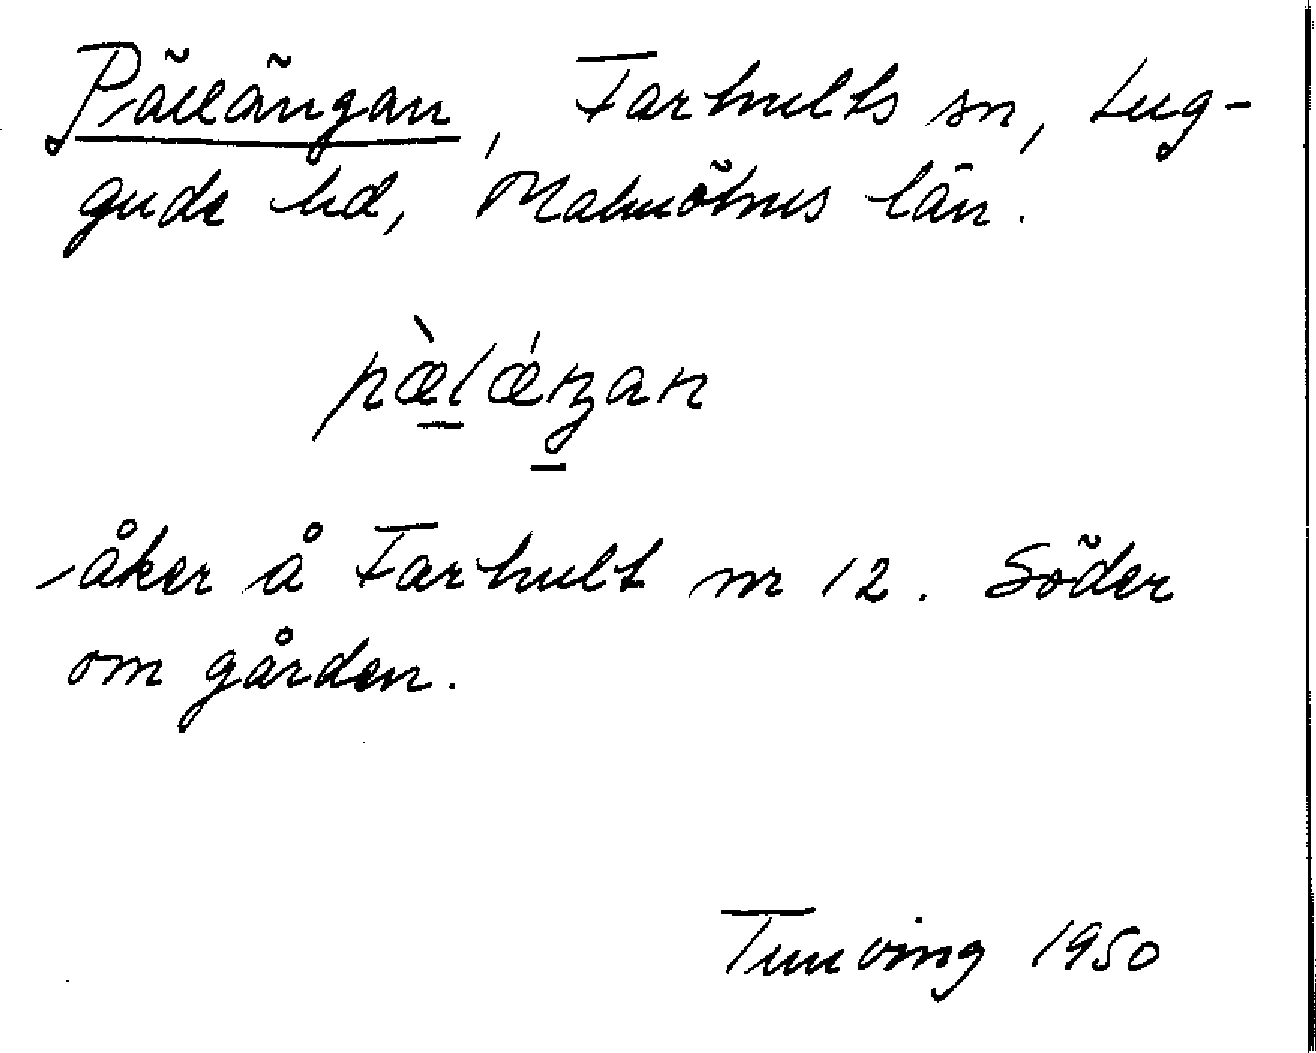 Pällängan, Farhults sn, Lug-
gude hd, Malmöhus län.
pæ̀lǽŋan
åker å Farhult nr 12. Söder
om gården.
Tunving 1950